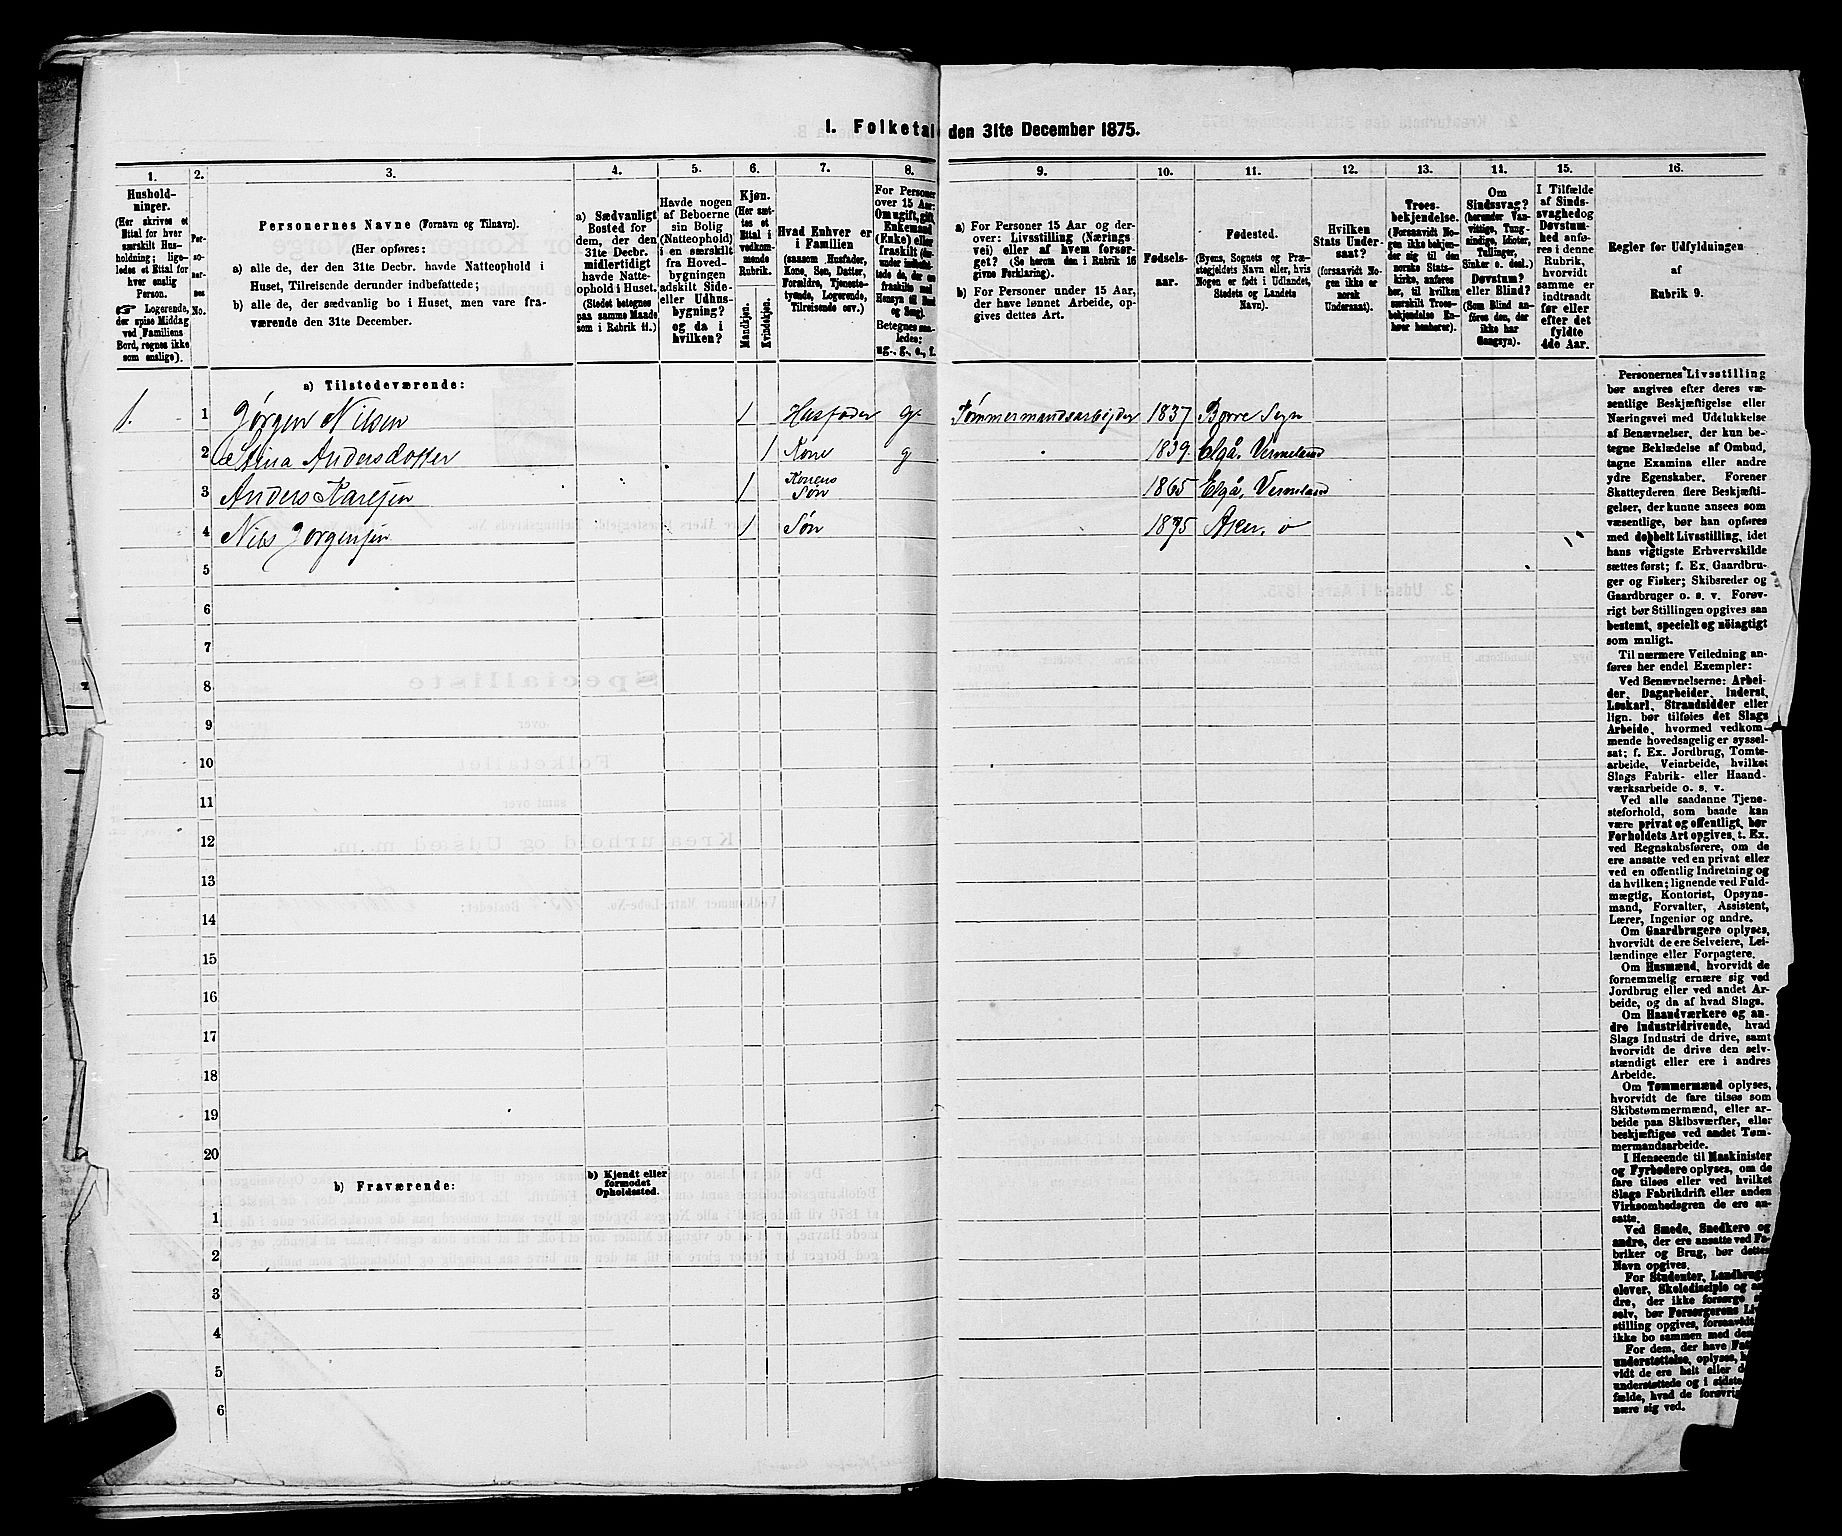 1. Folketal den 31te December 1875.
1.
2.
3.
4.
5.
6.
7.
8.
9.
10.
11.
12.
13.
14.
15.
16.
Hushold-
ninger.
(Her skrives et
Ettal for hver
særskilt Hus-
holdning; lige-
ledes et Ettal for
hver enslig
Person.
☞ Logerende,
der spise Middag
ved Familiens
Bord, regnes ikke
som enslige).
Per-
so-
ner-
nes
No.
Personernes Navne (Fornavn og Tilnavn).
(Her opføres:
a) alle de, der den 31te Decbr. havde Natteophold i
Huset, Tilreisende derunder indbefattede;
b) alle de, der sædvanlig bo i Huset, men vare fra-
værende den 31te December.
a) Sædvanligt
Bosted for
dem, der den
31te Decbr.
midlertidigt
havde Natte-
ophold i Huset.
(Stedet betegnes
paa samme Maade
som i Rubrik 11.)
Havde nogen
af Beboerne
sin Bolig
(Natteophold)
i en særskilt
fra Hoved-
bygningen
adskilt Side-
eller Udhus-
bygning?
og da i
hvilken?
Kjøn.
(Her sæt-
tes et
Ettal i
vedkom-
mende
Rubrik.
Mandkjøn.
Kvindekjøn.
Hvad Enhver er
i Familien
(saasom Husfader,
Kone, Søn, Datter,
Forældre, Tjeneste-
tyende, Logerende,
Tilreisende osv.)
For Personer
over 15 Aar:
Om ugift, gift,
Enkemand
(Enke) eller
fraskilt
Betegnes saa-
ledes:
ug., g., e., f.
a) For Personer 15 Aar og der-
over: Livsstilling (Nærings
vei) eller af hvem forsør-
get? (Se herom den i Rubrik 16
givne Forklaring).
b) For Personer under 15 Aar,
der have lønnet Arbeide, op-
gives dettes Art.
Fødsels-
aar.
Fødested.
(Byens, Sognets og Præ-
stegjeldets Navn eller, hvis
Nogen er født i Udlandet,
Stedets og Landets
Navn).
Hvilken
Stats Under-
saat?
(forsaavidt No-
gen ikke er
norsk
Undersaat).
Troes-
bekjendelse.
(Forsaavidt No-
gen ikke bekjen-
der sig til den
norske Stats-
kirke, anføres
her, til hvilken
særskilt Troes-
bekjendelse En-
hver henhører).
Om
Sindssvag?
(herunder Van-
vittige, Tung-
sindige, Idioter,
Tullinger,
Sinker o. desl.)
Døvstum?
eller Blind?
(Som Blind an-
føres den, der
ikke har
Gangsyn).
I Tilfælde
af Sinds-
svaghed og
Døvstum-
hed anfø-
res i denne
Rubrik,
hvorvidt
samme er
indtraadt
før eller
efter det
fyldte
4de Aar.
Regler for Udfyldningen
af
Rubrik 9.
a) Tilstedeværende:
1. 1 Jørgen Nilsen 1 Husfader g Tømmermandsarbejder 1837 Borre Sogn
2 Stina Andersdotter 1 Kone g 1839 Elgå, Vermeland
3 Anders Karlsen 1 Konens Søn 1865 Elgå, Vermeland
4 Nils Jørgensen 1 Søn 1875 Aker
5
6
7
8
9
10
11
12
13
14
15
16
17
18
19
20
b) Fraværende:
b) Kjendt eller
formodet
Opholdssted.
1
2
3
4
5
6
Personernes Livsstilling
bør angives efter deres væ-
sentlige Beskjæftigelse eller
Næringsvei med Udelukkelse
af Benævnelser, der kun be-
tegne Beklædelse af Ombud,
tagne Examina eller andre
ydre Egenskaber. Forener
Skatteyderen flere Beskjæfti-
gelser, der kunne ansees som
væsentlige, bør han opføres
med dobbelt Livsstilling, idet
hans vigtigste Erhvervskilde
sættes først; f. Ex. Gaardbru-
ger og Fisker; Skibsreder og
Gaardbruger o. s. v. Forøv-
rigt bør Stillingen opgives saa
bestemt, specielt og nöiagtigt
som muligt.
Til nærmere Veiledning an-
føres her endel Exempler:
Ved Benævnelserne: Arbei-
der, Dagarbeider, Inderst,
Løskarl, Strandsidder eller
lign. bør tilføies det Slags
Arbeide, hvormed vedkom-
mende hovedsagelig er syssel-
sat; f. Ex. Jordbrug, Tomte-
arbeide, Veiarbeide, hvilket
Slags Fabrik- eller Haand-
værksarbeide o. s. v.
Ved alle saadanne Tjene-
steforhold, som baade kan
være privat og offentligt, bør
Forholdets Art opgives, t. Ex.
ved Regnskabsførere, om de
ere ansatte ved en privat eller
ved en offentlig Indretning og
da hvilken; lignende ved Fuld-
mægtig, Kontorist, Opsyns-
mand, Forvalter, Assistent,
Lærer, Ingeniør og andre.
Om Gaardbrugere oplyses,
hvorvidt de ere Selveiere, Lei-
lændinge eller Forpagtere.
Om Husmænd, hvorvidt de
fornemmelig ernære sig ved
Jordbrug eller ved andet Ar-
beide, og da af hvad Slags.
Om Haandværkere og an-
dre Industridrivende, hvad
Slags Industri de drive, samt
hvorvidt de drive den selv-
stændigt eller ere i andres
Arbeide.
Om Tømmermænd oplyses,
hvorvidt de fare tilsøs som
Skibstømmermænd, eller ar-
beide paa Skibsværfter, eller
beskjæftiges ved andet Tøm-
mermandsarbeide.
I Henseende til Maskinister
og Fyrbødere oplyses, om de
fare tilsøs eller ved hvilket
Slags Fabrikdrift eller anden
Virksomhedsgren de ere an-
satte.
Ved Smede, Snedkere og
andre, der ere ansatte ved Fa-
briker og Brug, bør dettes
Navn opgives.
For Studenter, Landbrugs-
elever, Skoledisciple og
dre, der ikke forsørge
selv, bør Forsørgerens
stilling opgives, forsaavidt
ikke bo sammen med
For dem, der have
understøttelse, oplyses,
vidt de ere helt eller
understøttede og i sidste
fælde, hvad de forøvrig
nære sig ved.